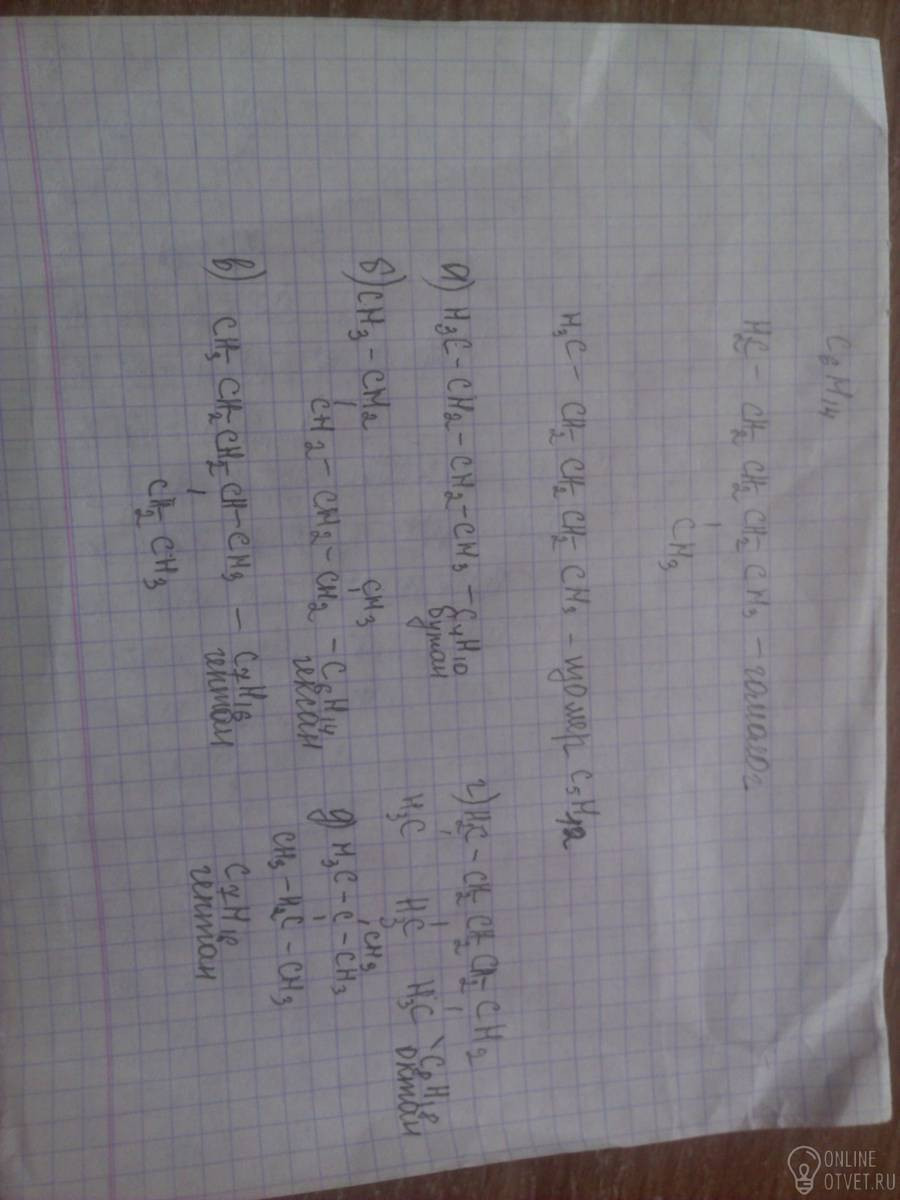 C₆H₁₄
H₂C - CH₂ CH₂ CH₂ - CH₃ - гамалог
CH₃
H₃C - CH₂ CH₂ CH₂ - CH₃ - изомер C₅H₁₂
а) H₃C - CH₂ - CH₂ - CH₃ - C₄H₁₀
бутан
б) CH₃ - CH₂ CH₃
CH₂ - CH₂ - CH₂ - C₆H₁₄
гексан
в) CH₃ - CH₂ CH₂ CH - CH₃ - C₇H₁₆
гептан
CH₂ CH₃
г) H₂C - CH₂ CH₂ CH₂ CH₂
H₃C H₃C H₃C C₈H₁₈
октан
CH₃
д) H₃C - C - CH₃
CH₃ - H₂C - CH₃
C₇H₁₆
гептан
ONLINE
OTVET.RU